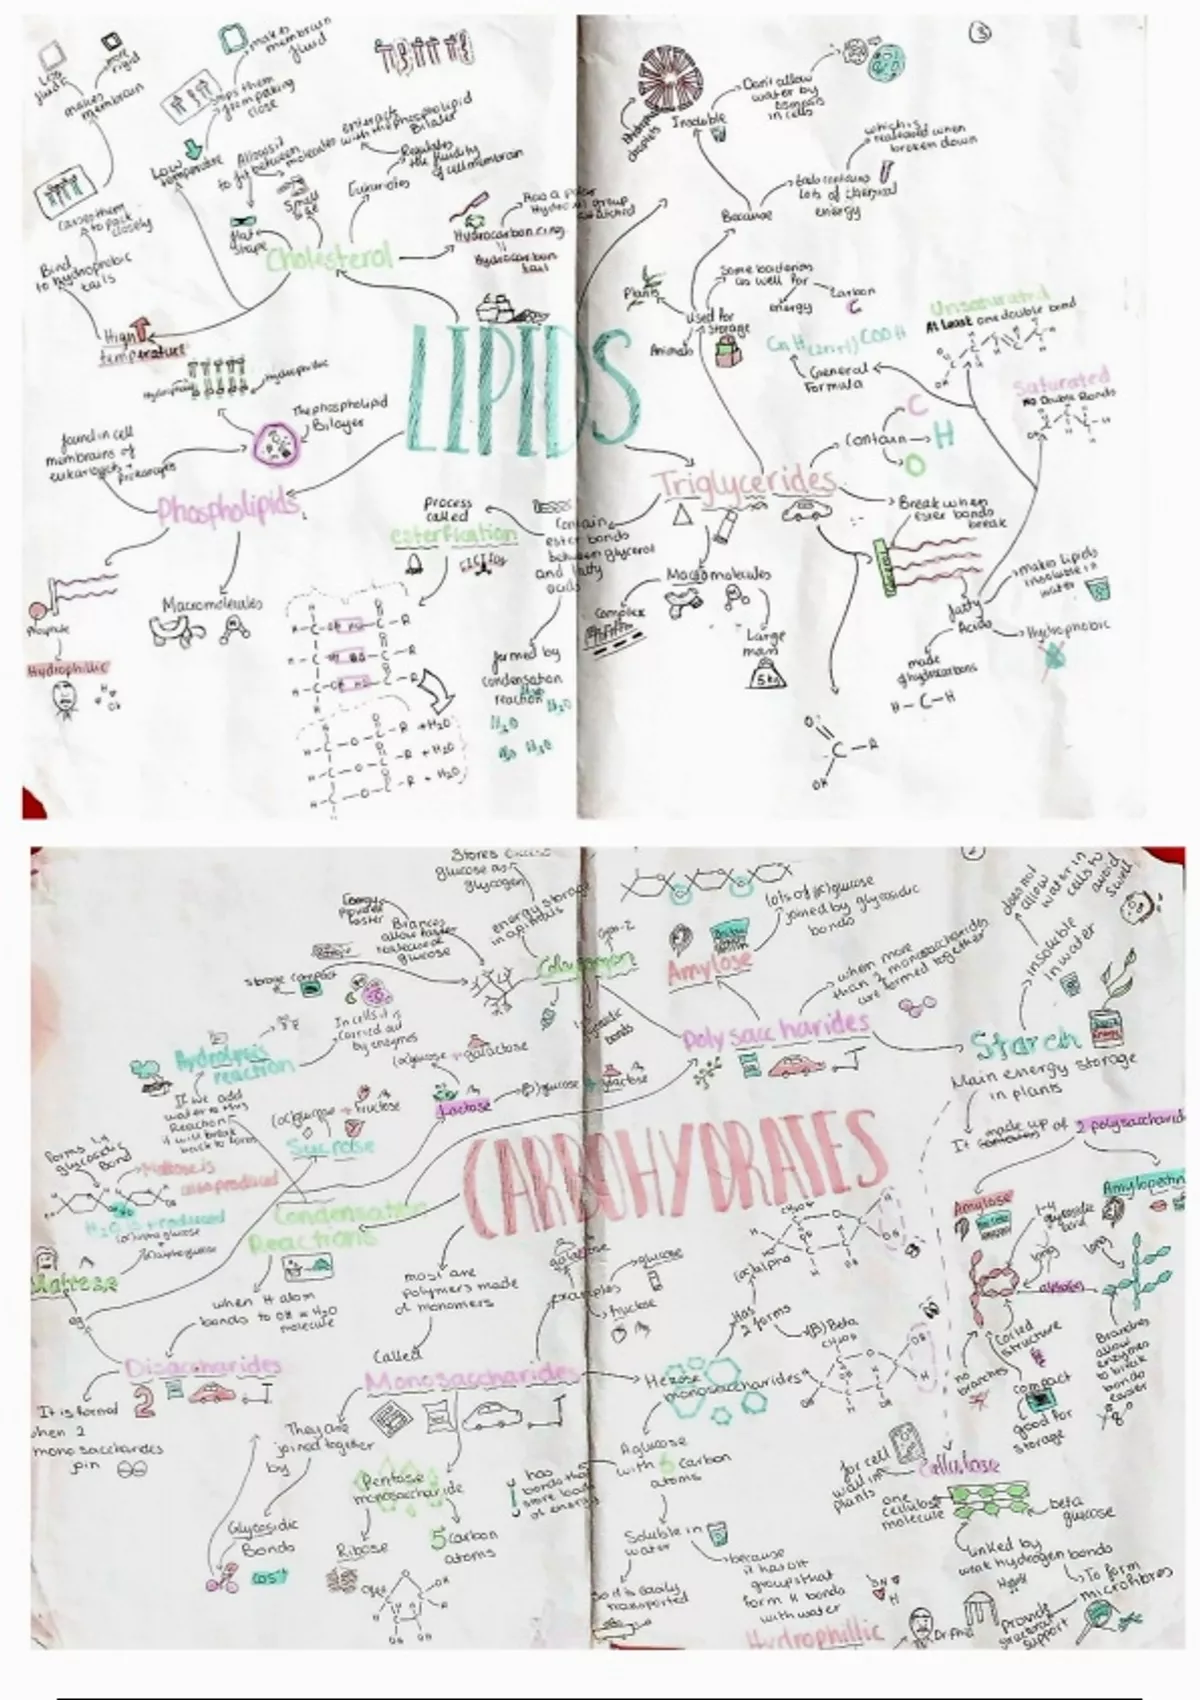 Less
fluid
more
rigid
makes
membrane
makes
membrane
fluid
stops them
from packing
close
Low
temperature
Allows it
to fit between
molecules
interacts
with the phospholipid
Bilayer
Regulates
the fluidity
of cell membrane
Eukaryotes
Small
size
flat
shape
causes them
to pack
closely
Bind
to hydrophobic
tails
High
temperature
Cholesterol
Has a polar
Hydroxyl group
attached
Hydrocarbon ring
Hydrocarbon
tail
LIPIDS
The phospholipid
Bilayer
found in cell
membranes of
eukaryotes +
prokaryotes
Phospholipids
Phosphate
Hydrophillic
Macromolecules
Process
called
esterfication
Contain
ester bonds
between glycerol
and fatty
acids
formed by
condensation
reaction
H2O
H2O
H2O
+ H2O
+ H2O
+ H2O
3
Insoluble
Don't allow
water by
osmosis
in cells
which is
released when
broken down
Each contains
lots of chemical
energy
Because
Plants
Some bacterias
as well for
energy
Carbon
C
Used for
storage
Animals
CnH(2n+1)COOH
General
Formula
Unsaturated
At Least one double bond
Saturated
No Double Bonds
Contain
C
H
O
Triglycerides
Break when
ester bonds
break
Macromolecules
Complex
Large
main
5kg
fatty
Acids
makes lipids
insoluble in
water
Hydrophobic
made
of hydrocarbons
H-C-H
O
C-R
OH
Stores excess
glucose as
glycogen
energy storage
in animals
Branches
allow faster
release of
glucose
Storage compact
Glycogen
lots of (α)glucose
joined by glycosidic
bonds
Amylose
when more
than 2 monosaccharides
are formed together
Polysaccharides
does not
allow
water in
cells to
avoid
swell
insoluble
in water
Starch
Main energy storage
in plants
It made up of 2 polysaccharid
Hydrolysis
reaction
In cells it is
carried out
by enzymes
If we add
water to this
Reaction
it will break
back to forms
(α)glucose + galactose
Lactose
(β)glucose + galactose
(α)glucose + fructose
Sucrose
forms 1,4
glycosidic
Bond
Maltose is
also produced
H2O is produced
(α)alpha glucose
+
(α)alpha glucose
Maltose
eg
Condensation
Reactions
CARBOHYDRATES
when H atom
bonds to OH = H2O
molecule
most are
polymers made
of monomers
Called
Disaccharides
2
It is formed
when 2
monosaccharides
join
Monosaccharides
They are
joined together
by
Glycosidic
Bonds
Pentose
monosaccharide
Ribose
5 carbon
atoms
galactose
examples
glucose
fructose
(α)alpha
Has
2 forms
(β)Beta
Hexose
monosaccharides
A glucose
with 6 carbon
atoms
has
bonds that
store loads
of energy
Soluble in
water
so it is easily
transported
because
it has OH
groups that
form H bonds
with water
Hydrophillic
Amylose
1-4
glycosidic
bond
long
long
Amylopectin
coiled
structure
no
branches
compact
good for
storage
Branches
allow
enzymes
to break
bonds
easier
Cellulose
for cell
wall in
plants
one
cellulose
molecule
beta
glucose
linked by
weak hydrogen bonds
To form
microfibres
Provide
structural
support
Dr.Phil